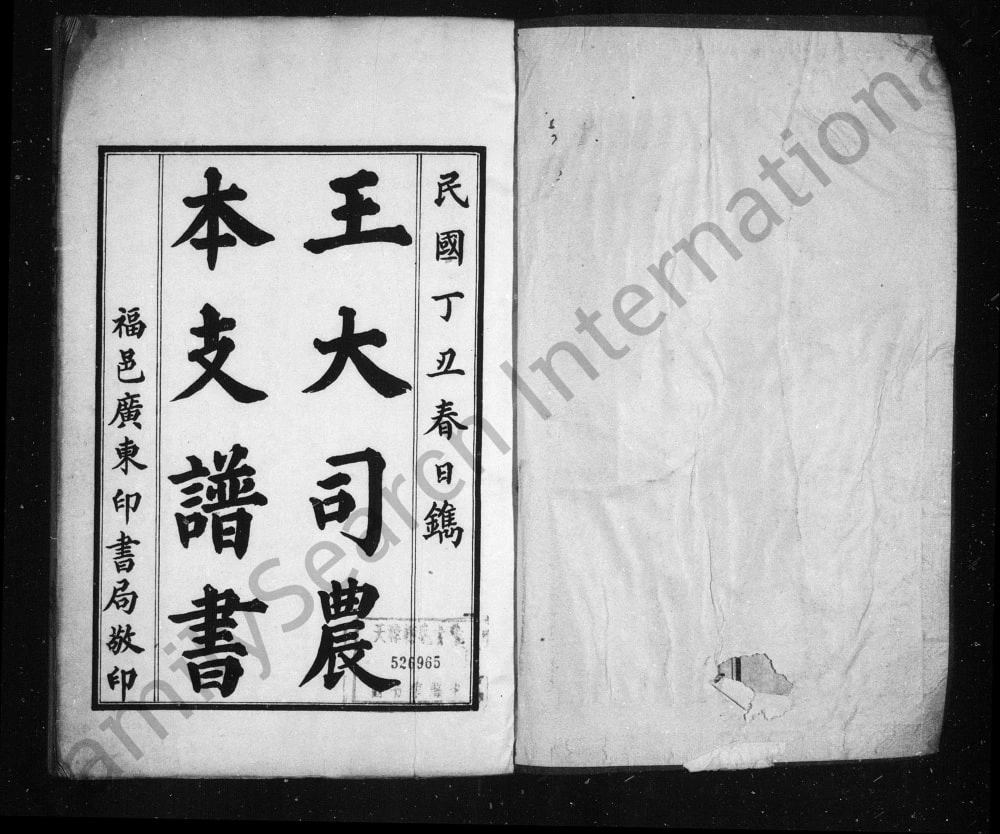 民國丁丑春日鐫
王大司農
本支譜書
福邑廣東印書局敬印
526965
FamilySearch International